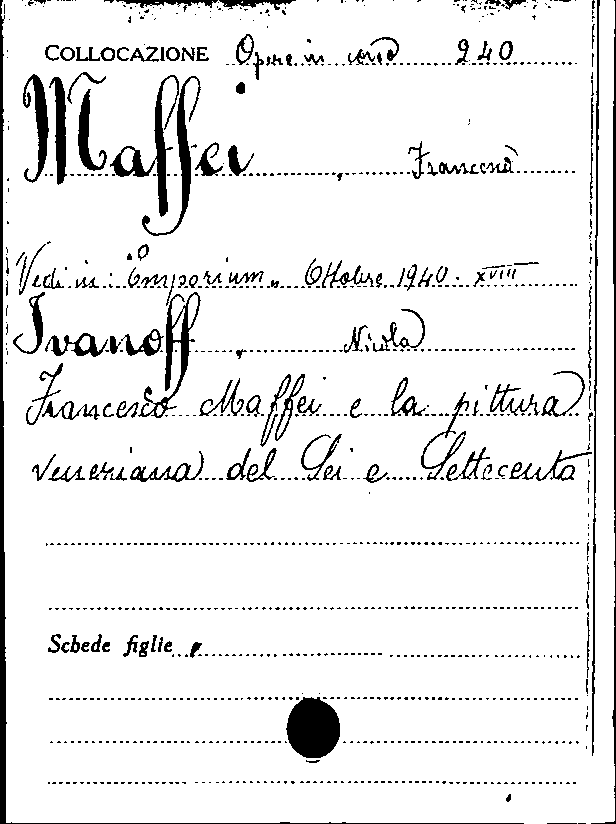 COLLOCAZIONE Opere in corso 240
Maffei, Francesco
Vedi in: "Emporium" Ottobre 1940. XVIII
Ivanoff, Nicola
Francesco Maffei e la pittura
veneziana del Sei e Settecento
Schede figlie